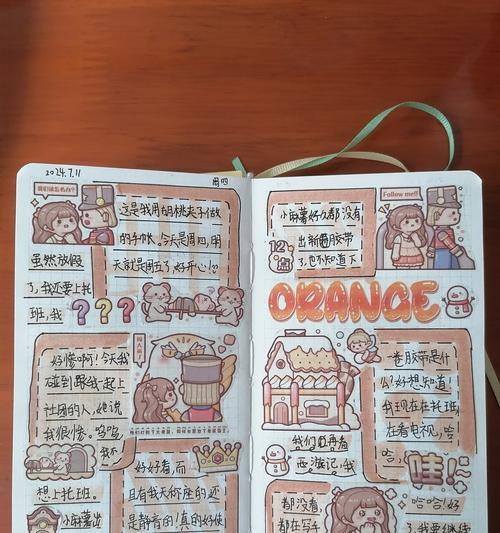 2024.7.11
周四
我们该怎么办?
这是我用胡桃夹子做
的手帐，今天是周四，明
天就是周五了，好开心!
虽然放假
了，我还要上托
班，我
???
好惨啊!今天我
碰到跟我一起上
社团的人，她说
我很惨。呜呜，
我不
想上托班。
小麻薯出
好好看，而
且有我天秤座的，还
是静音的!真的好使
Follow me!!
小麻薯好久都没有
出新的胶带
了，也不知道下
12
ORANGE
一卷胶带是什
么?好想知道!
我现在在托班
在看电视，哈
哈，
哇!
我们在看
西游记，我
都没有，
都在写手
哈哈!好
了，我要继续